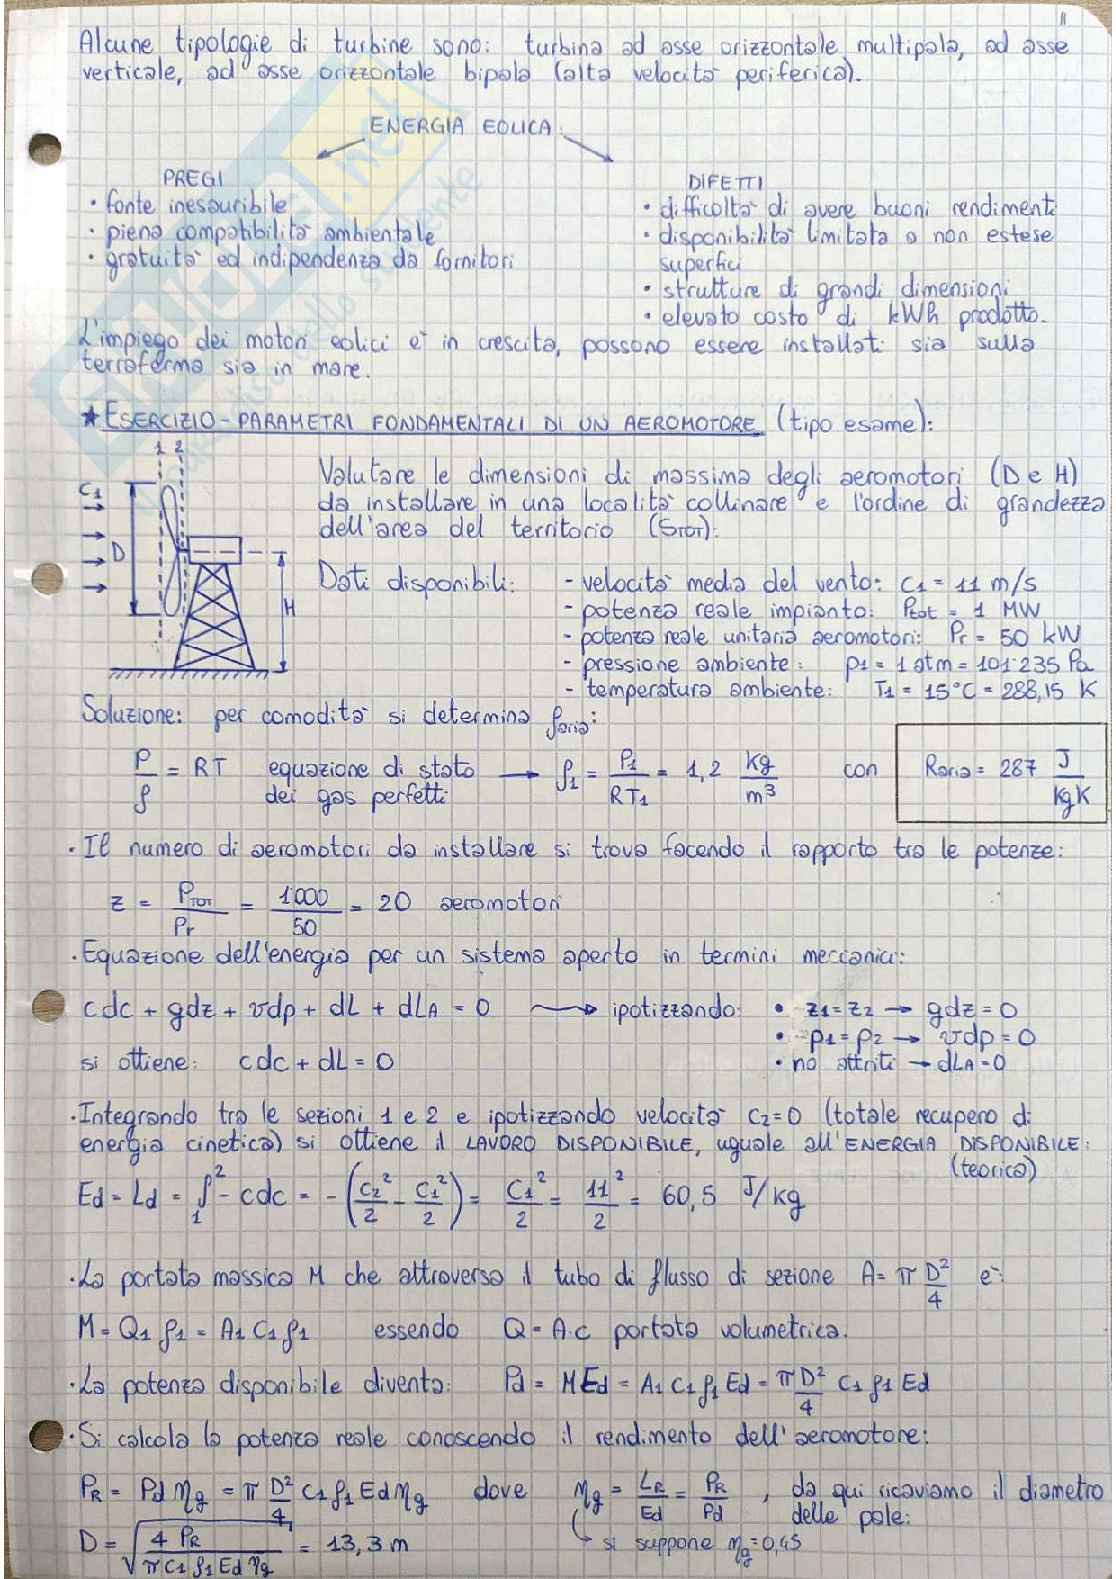 11
Alcune tipologie di turbine sono: turbina ad asse orizzontale multipala, ad asse
verticale, ad asse orizzontale bipala (alta velocità periferica).
ENERGIA EOLICA:
PREGI
• fonte inesauribile
• piena compatibilità ambientale
• gratuità ed indipendenza da fornitori
DIFETTI
• difficoltà di avere buoni rendimenti
• disponibilità limitata a non estese
superfici
• strutture di grandi dimensioni
• elevato costo di kWh prodotto.
L'impiego dei motori eolici è in crescita, possono essere installati sia sulla
terraferma sia in mare.
★ ESERCIZIO - PARAMETRI FONDAMENTALI DI UN AEROMOTORE (tipo esame):
1 2
C1
D
H
Valutare le dimensioni di massima degli aeromotori (D e H)
da installare in una località collinare e l'ordine di grandezza
dell'area del territorio (STOT).
Dati disponibili: - velocità media del vento: C1 = 11 m/s
- potenza reale impianto: Ptot = 1 MW
- potenza reale unitaria aeromotori: Pr = 50 kW
- pressione ambiente: p1 = 1 atm = 101'235 Pa
- temperatura ambiente: T1 = 15°C = 288,15 K
Soluzione: per comodità si determina ρaria:
P/ρ = RT equazione di stato dei gas perfetti → ρ1 = P1/RT1 = 1,2 kg/m³ con Raria = 287 J/kgK
• Il numero di aeromotori da installare si trova facendo il rapporto tra le potenze:
z = PTOT/Pr = 1'000/50 = 20 aeromotori
• Equazione dell'energia per un sistema aperto in termini meccanici:
cdc + gdz + vdp + dL + dLA = 0 → ipotizzando: • z1=z2 → gdz = 0
• p1=p2 → vdp=0
si ottiene: cdc + dL = 0 • no attriti → dLA=0
• Integrando tra le sezioni 1 e 2 e ipotizzando velocità C2=0 (totale recupero di
energia cinetica) si ottiene il LAVORO DISPONIBILE, uguale all'ENERGIA DISPONIBILE:
(teorica)
Ed = Ld = ∫₁² - cdc = - (C2²/2 - C1²/2) = C1²/2 = 11²/2 = 60,5 J/kg
• La portata massica M che attraversa il tubo di flusso di sezione A = π D²/4 è:
M = Q1 ρ1 = A1 C1 ρ1 essendo Q = A·c portata volumetrica.
• La potenza disponibile diventa: Pd = M Ed = A1 C1 ρ1 Ed = π D²/4 C1 ρ1 Ed
• Si calcola la potenza reale conoscendo il rendimento dell'aeromotore:
PR = Pd ηg = π D²/4 C1 ρ1 Ed ηg dove ηg = LR/Ed = PR/Pd , da qui ricaviamo il diametro
delle pale:
D = √(4 PR/π C1 ρ1 Ed ηg) = 13,3 m si suppone ηg = 0,45